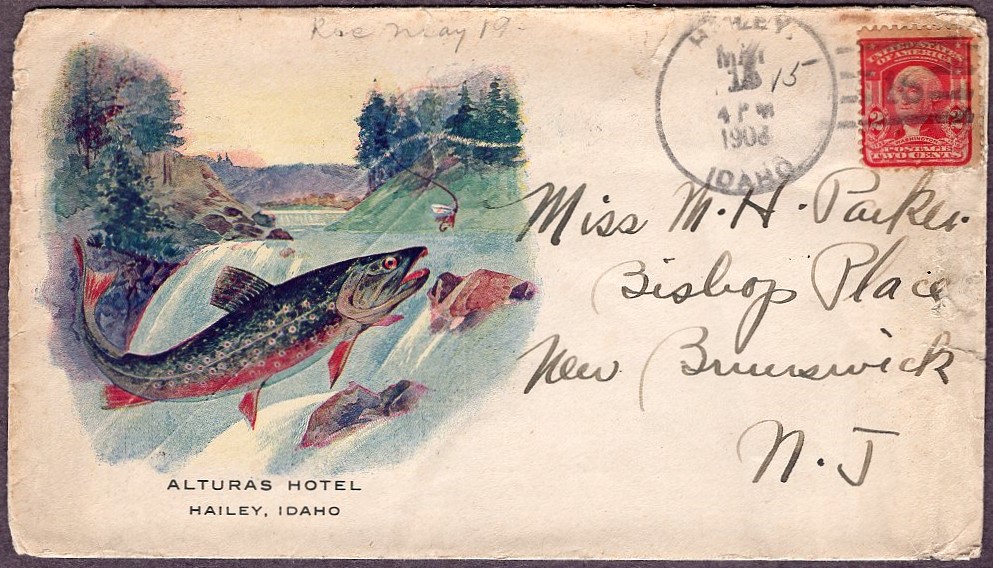 Rec May 19-
HAILEY,
MAY
15 15
4 PM
1908
IDAHO
UNITED STATES
OF AMERICA
2 2
WASHINGTON
POSTAGE
TWO CENTS
Miss M. H. Parker.
Bishop Place
New Brunswick
N. J
ALTURAS HOTEL
HAILEY, IDAHO